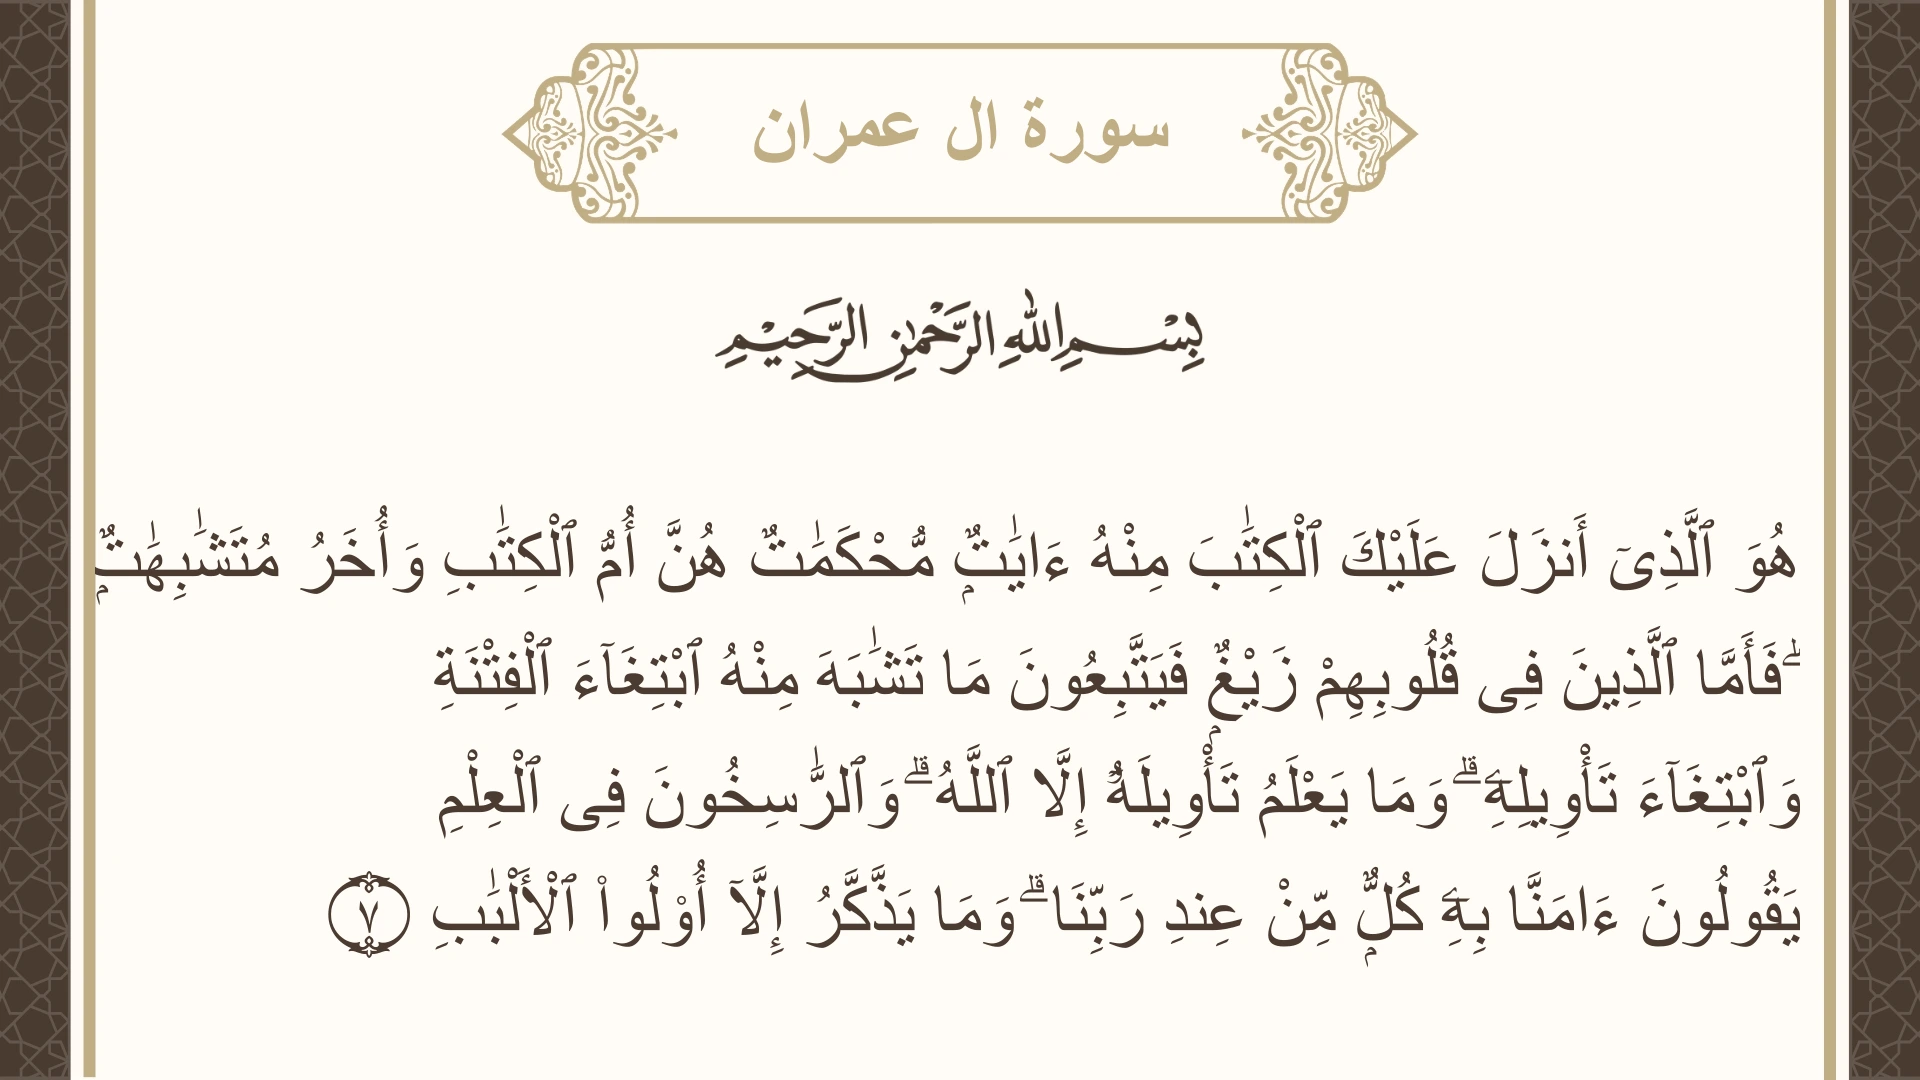 سورة ال عمران
بِسْمِ اللهِ الرَّحْمٰنِ الرَّحِيْمِ
هُوَ ٱلَّذِىٓ أَنزَلَ عَلَيْكَ ٱلْكِتَٰبَ مِنْهُ ءَايَٰتٌۭ مُّحْكَمَٰتٌ هُنَّ أُمُّ ٱلْكِتَٰبِ وَأُخَرُ مُتَشَٰبِهَٰتٌۭ
ۖ فَأَمَّا ٱلَّذِينَ فِى قُلُوبِهِمْ زَيْغٌۭ فَيَتَّبِعُونَ مَا تَشَٰبَهَ مِنْهُ ٱبْتِغَآءَ ٱلْفِتْنَةِ
وَٱبْتِغَآءَ تَأْوِيلِهِۦ ۗ وَمَا يَعْلَمُ تَأْوِيلَهُۥٓ إِلَّا ٱللَّهُ ۗ وَٱلرَّٰسِخُونَ فِى ٱلْعِلْمِ
يَقُولُونَ ءَامَنَّا بِهِۦ كُلٌّۭ مِّنْ عِندِ رَبِّنَا ۗ وَمَا يَذَّكَّرُ إِلَّآ أُو۟لُوا۟ ٱلْأَلْبَٰبِ ٧